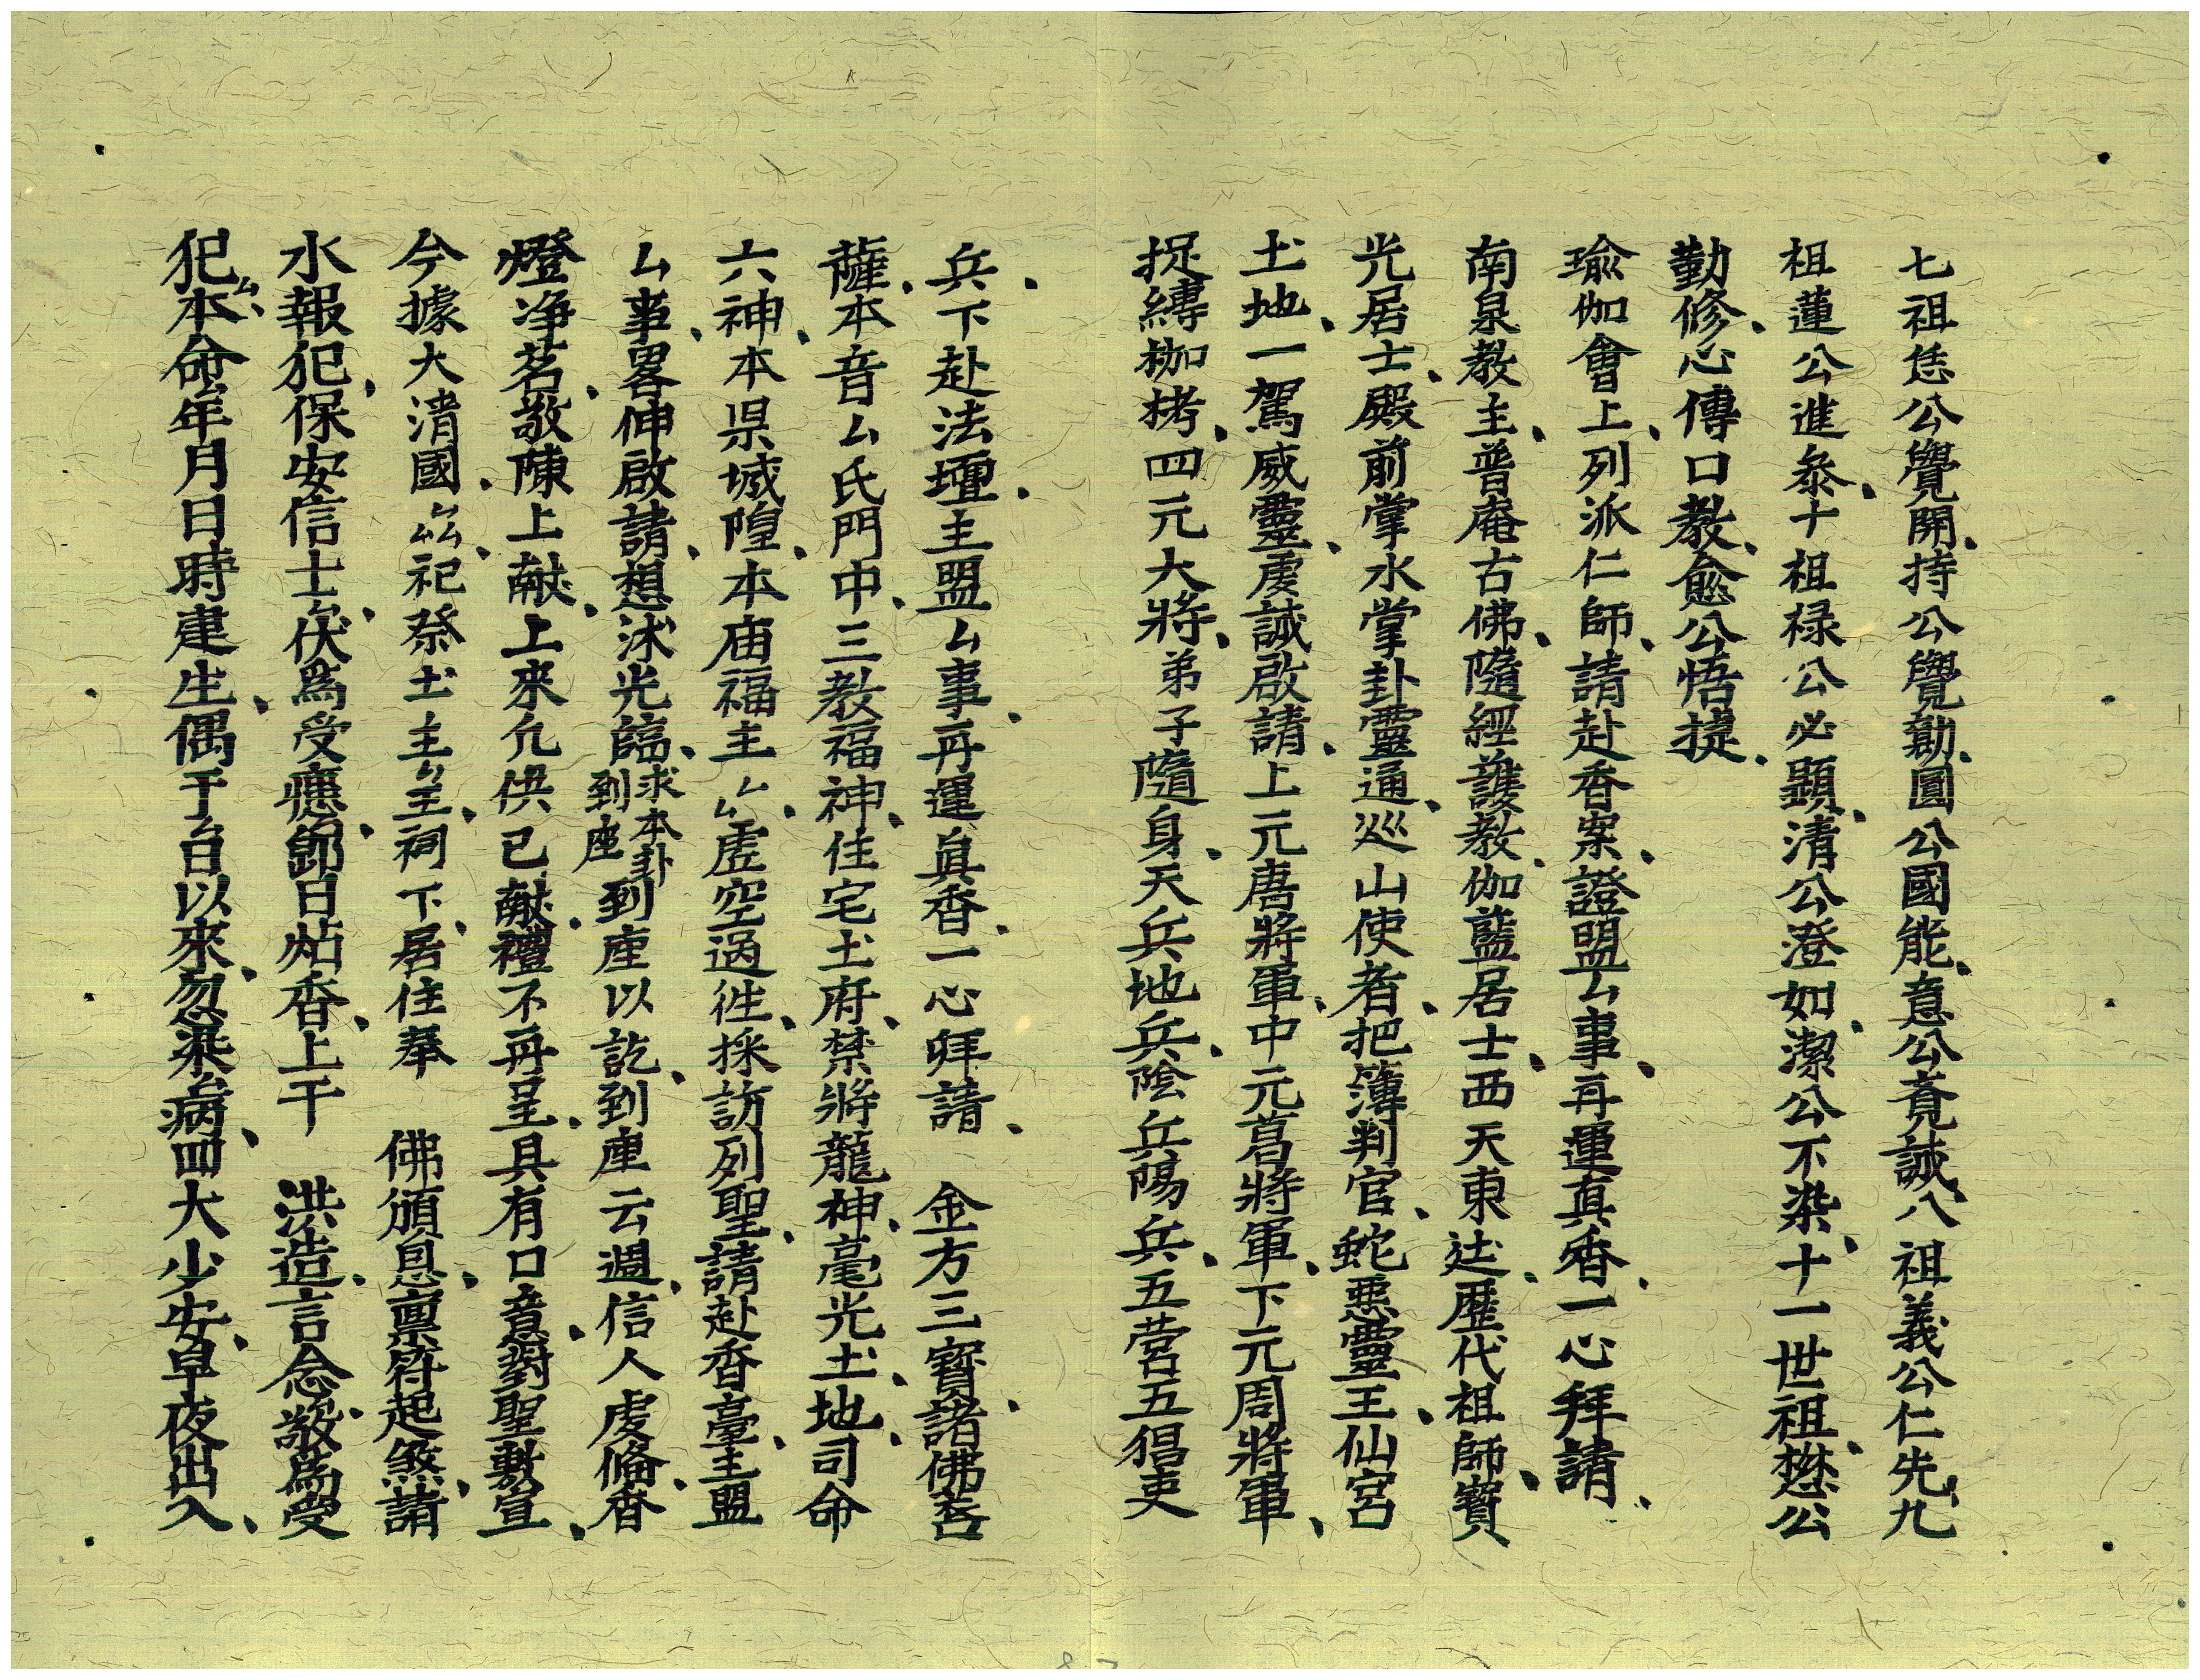 七祖恁公覺開、持公覺勸、圓公國能、意公竟誠、八祖義公仁先、九
祖蓮公進叅、十祖祿公必顕、清公澄如、潔公不染、十一世祖、懋公
勤修、心傳口教、愈公悟提、
瑜伽會上、列派仁師、請赴香案、證盟厶事、再運真香、一心拜請、
南泉教主、普庵古佛、隨經護教、伽藍居士、西天東迏、歷代祖師、寳
光居士、殿前掌水掌卦靈通、巡山使者、把簿判官、蛇惡靈王、仙宮
土地、一駕威靈、虔誠啟請、上元唐將軍、中元葛將軍、下元周將軍、
捉縛枷栲、四元大將、弟子隨身、天兵地兵、陰兵陽兵、五营五猖吏
兵、下赴法壇、主盟厶事、再運眞香、一心拜請、 金方三寳、諸佛菩
薩、本音厶氏門中、三教福神、住宅土府、禁將龍神、毫光土地、司命
六神、本県城隍、本庙福主、厶厶虛空過徃、採訪列聖、請赴香臺、主盟
厶事、畧伸啟請、想沐光臨、求本卦到座到座以訖、到座云週、信人虔俻、香
燈净茗、敬陳上献、上來凢供已献、禮不再呈、具有口意、對聖敷宣、
今據大清國、厶厶厶祀祭土主厶主、祠下、居住奉 佛頒息、禀符起煞、請
水報犯、保安信士厶、伏爲受瘧、卽日炷香、上干 洪造、言念厶、敬爲受
犯厶、本命厶年月日時建生、偶于厶日以來、忽染厶病、四大少安、早夜出入、